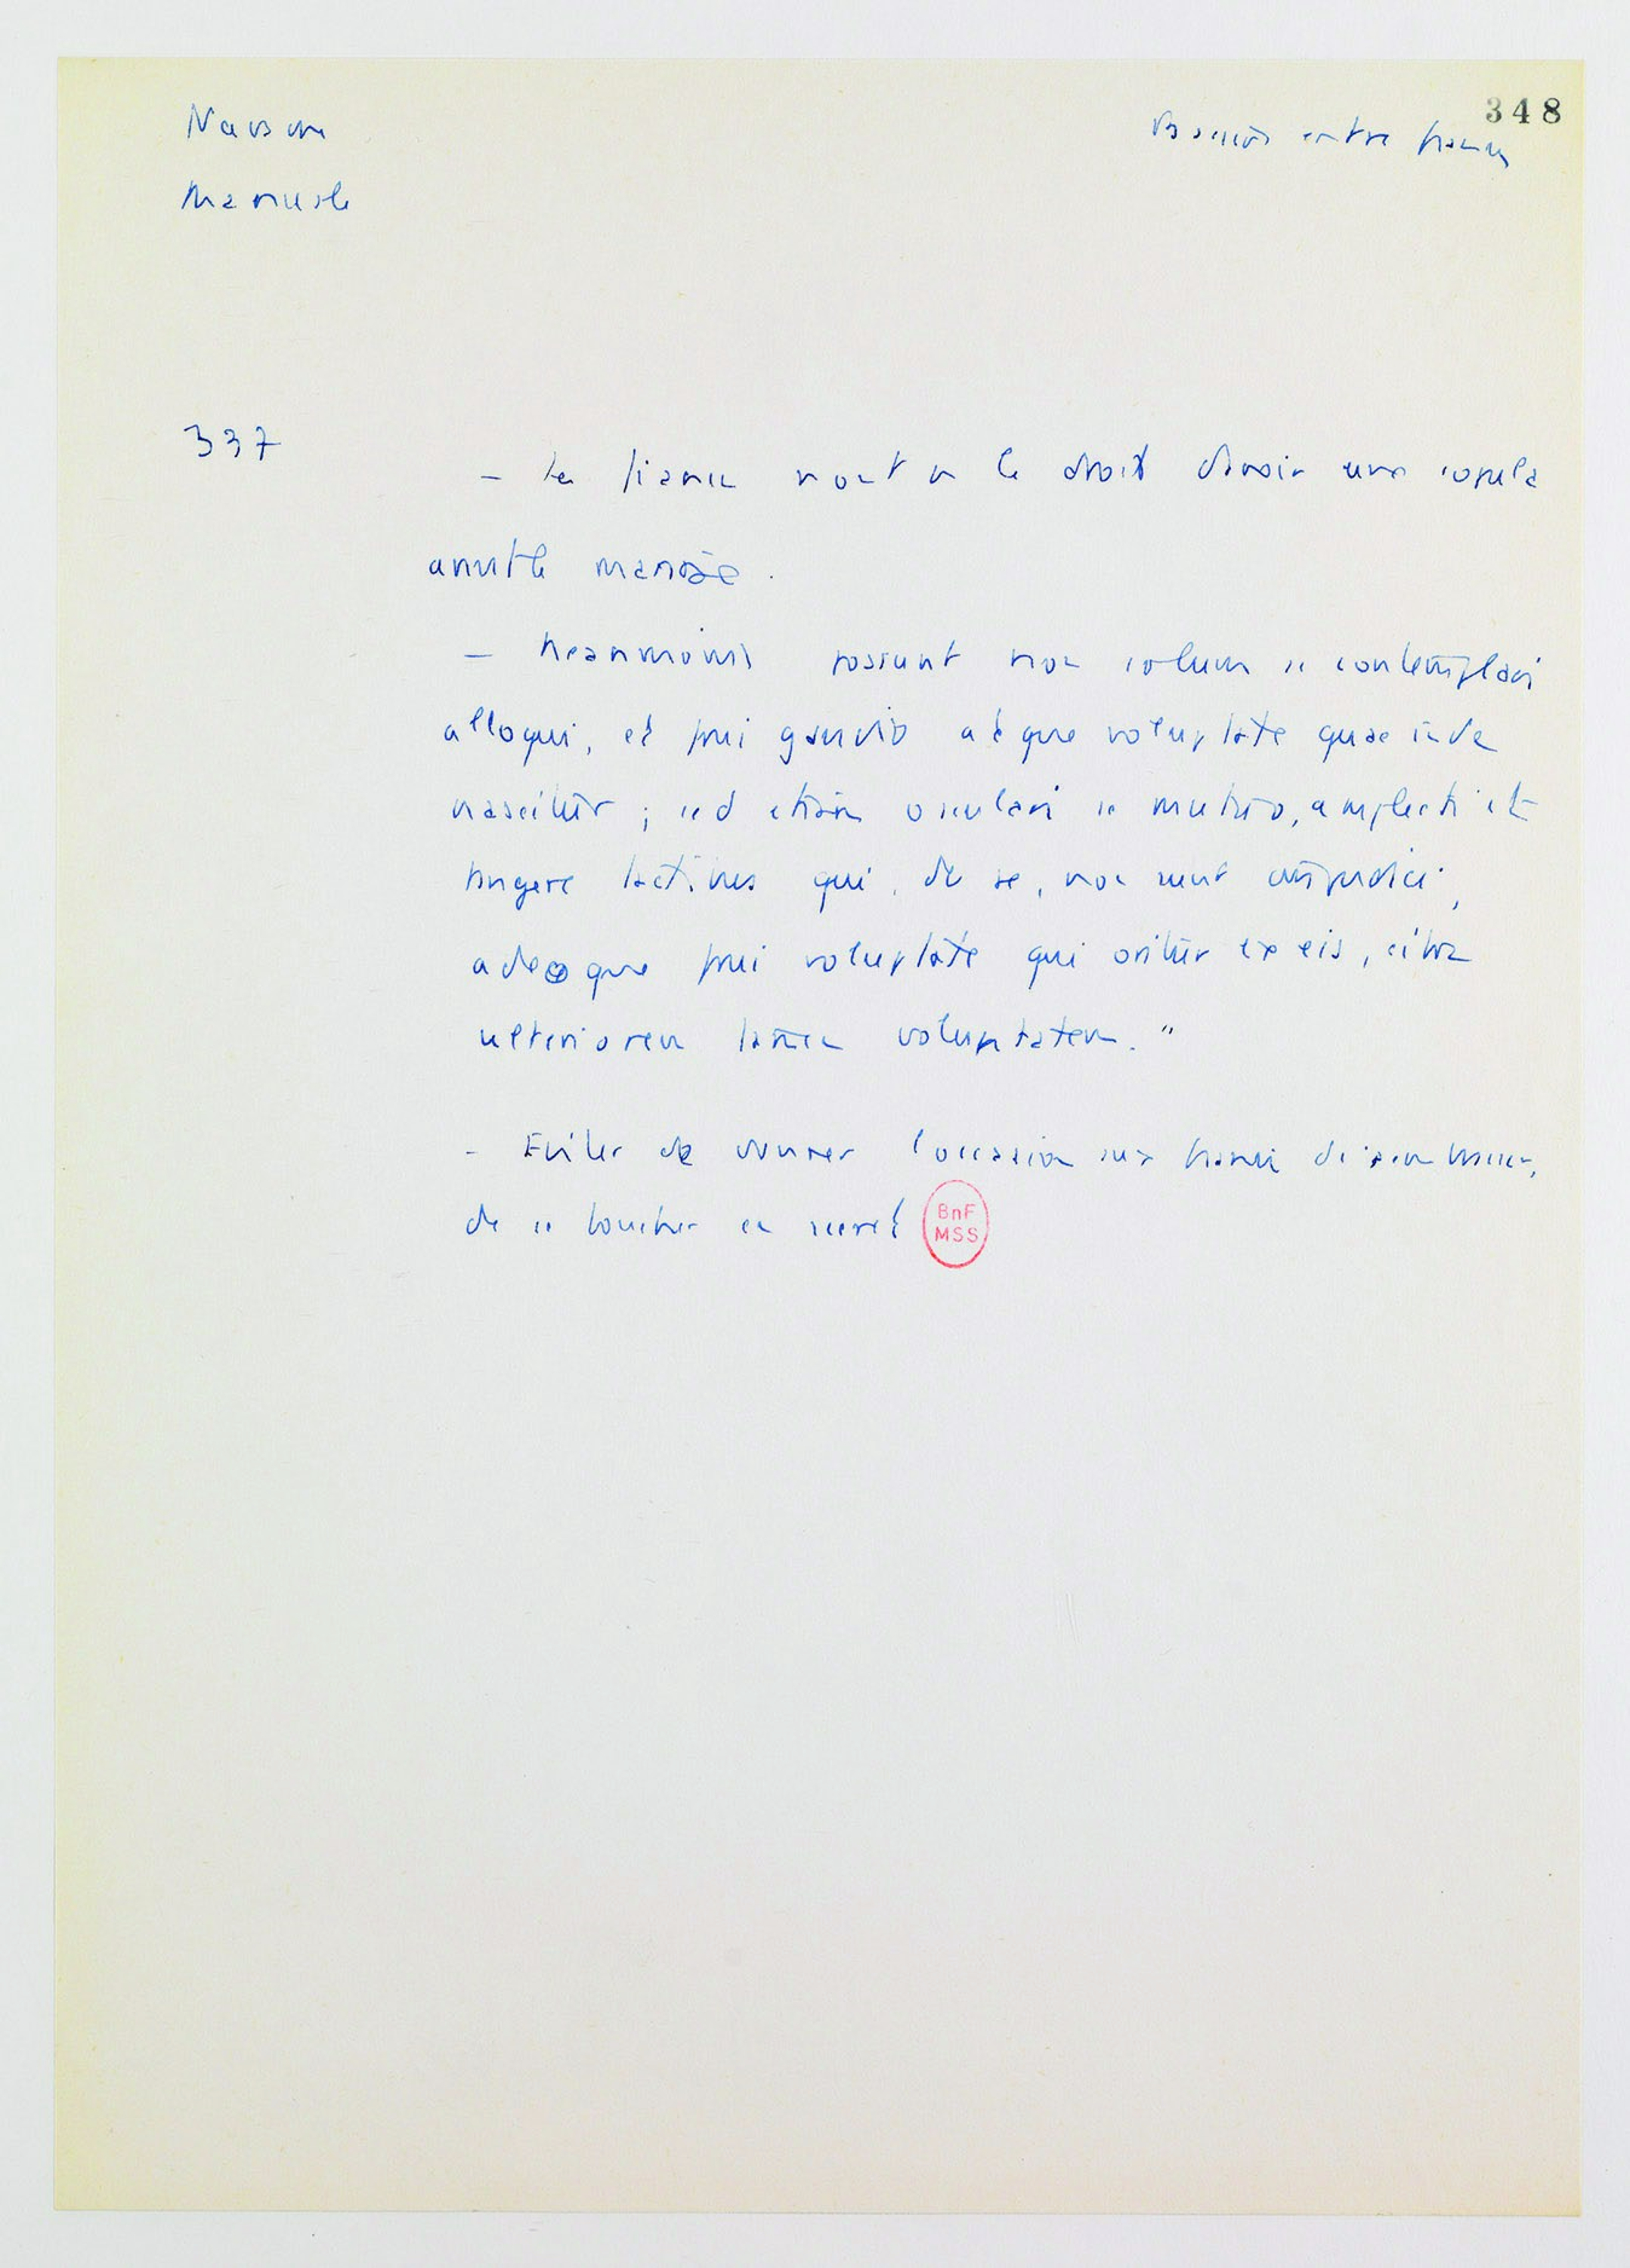 348
Navarre
Manuale
Baisers entre fiancés
337
- Les fiancés n'ont pas le droit d'avoir une copula
avant le mariage.
- Neanmoins possunt non solum se contemplari
alloqui, et frui gaudio atque voluptate quae inde
nascitur ; sed etiam osculari se mutuo, amplecti et
tangere tactibus qui, de se, non sunt impudici,
adeoque frui voluptate qui oritur ex eis, citra
ulteriorem tamen voluptatem."
- Eviter de donner l'occasion aux fiancés de
de se toucher en secret
BnF
MSS